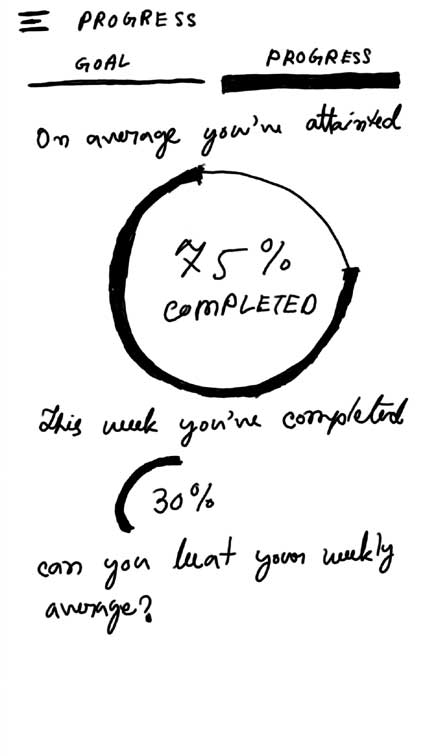 PROGRESS
GOAL
PROGRESS
On average you've attained
75%
COMPLETED
This week you've completed
30%
can you beat your weekly
average?